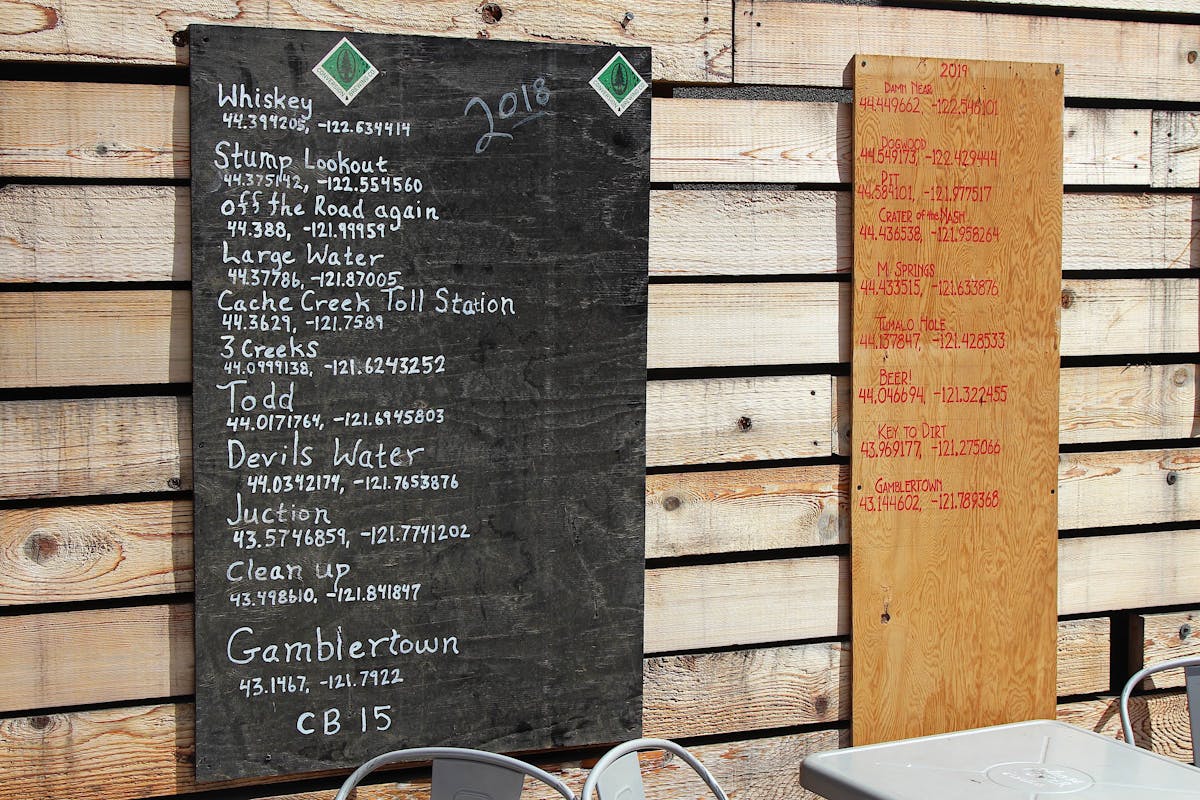 2018
Whiskey
44.394205, -122.634414
Stump Lookout
44.375142, -122.554560
off the Road again
44.388, -121.99959
Large Water
44.37786, -121.87005
Cache Creek Toll Station
44.3629, -121.7589
3 Creeks
44.0999138, -121.6243252
Todd
44.0171764, -121.6945803
Devils Water
44.0342174, -121.7653876
Juction
43.5746859, -121.7741202
Clean up
43.498610, -121.841847
Gamblertown
43.1467, -121.7922
CB 15
2019
Damn Near
44.449662, -122.546101
Dogwood
44.549173, -122.429444
Pit
44.584101, -121.977517
Crater of the Nash
44.436538, -121.958264
M. Springs
44.433515, -121.633876
Tumalo Hole
44.137847, -121.428533
Beer!
44.046694, -121.322455
Key to Dirt
43.969177, -121.275066
Gamblertown
43.144602, -121.789368